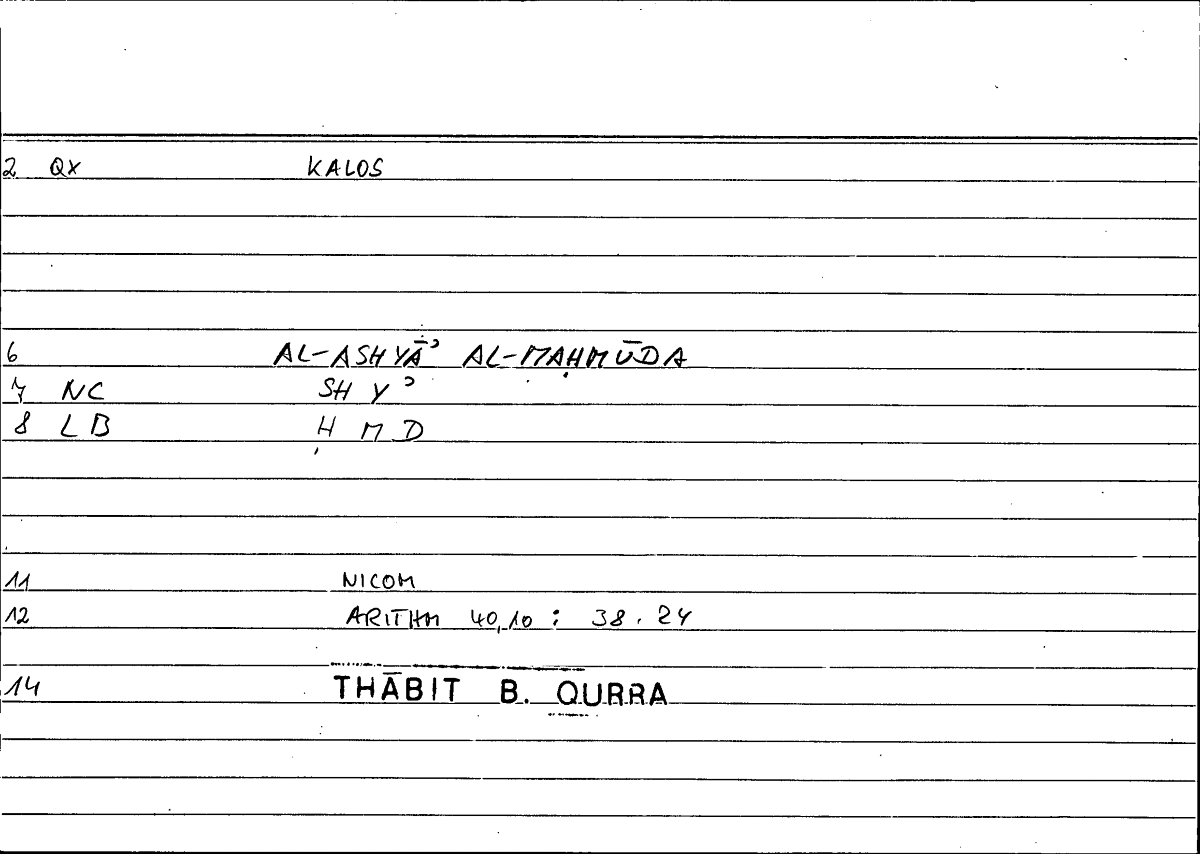 2 QX KALOS
6 AL-ASHYĀʾ AL-MAḤMŪDA
7 NC SH Y ʾ
8 LB Ḥ M D
11 NICOM
12 ARITHM 40,10 : 38.24
14 THĀBIT B. QURRA